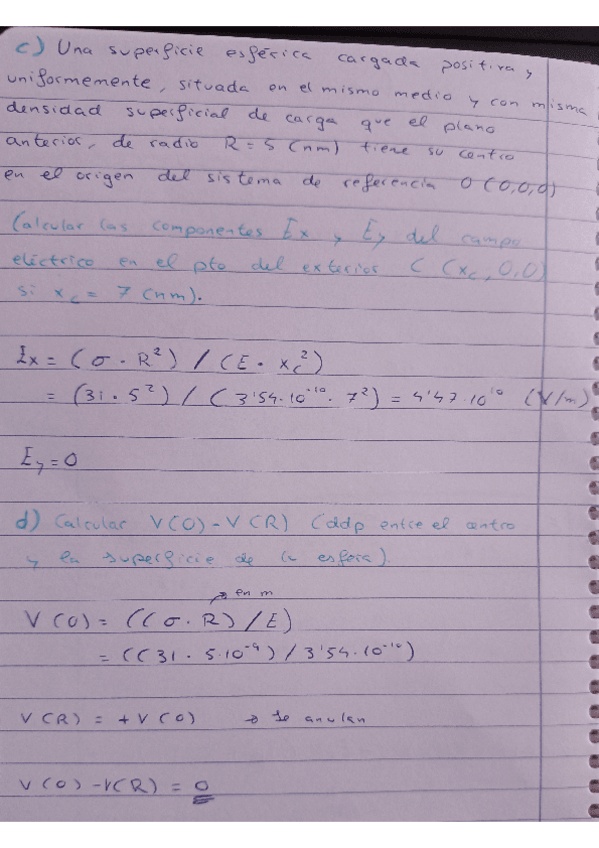 c) Una superficie esférica cargada positiva y
uniformemente, situada en el mismo medio y con misma
densidad superficial de carga que el plano
anterior, de radio R = 5 (nm) tiene su centro
en el origen del sistema de referencia O (0,0,0)
Calcular las componentes Ex y Ey del campo
eléctrico en el pto del exterior C (xc, 0,0)
si xc = 7 (nm).
Ex = (σ · R²) / (E · xc²)
= (31 · 5²) / (3'54·10⁻¹⁰ · 7²) = 4'47·10¹⁰ (V/m)
Ey = 0
d) Calcular V(O) - V(R) (ddp entre el centro
y en superficie de la esfera).
→ en m
V(O) = ((σ · R) / E)
= ((31 · 5·10⁻⁹) / 3'54·10⁻¹⁰)
V(R) = + V(O) → se anulan
V(O) - V(R) = 0